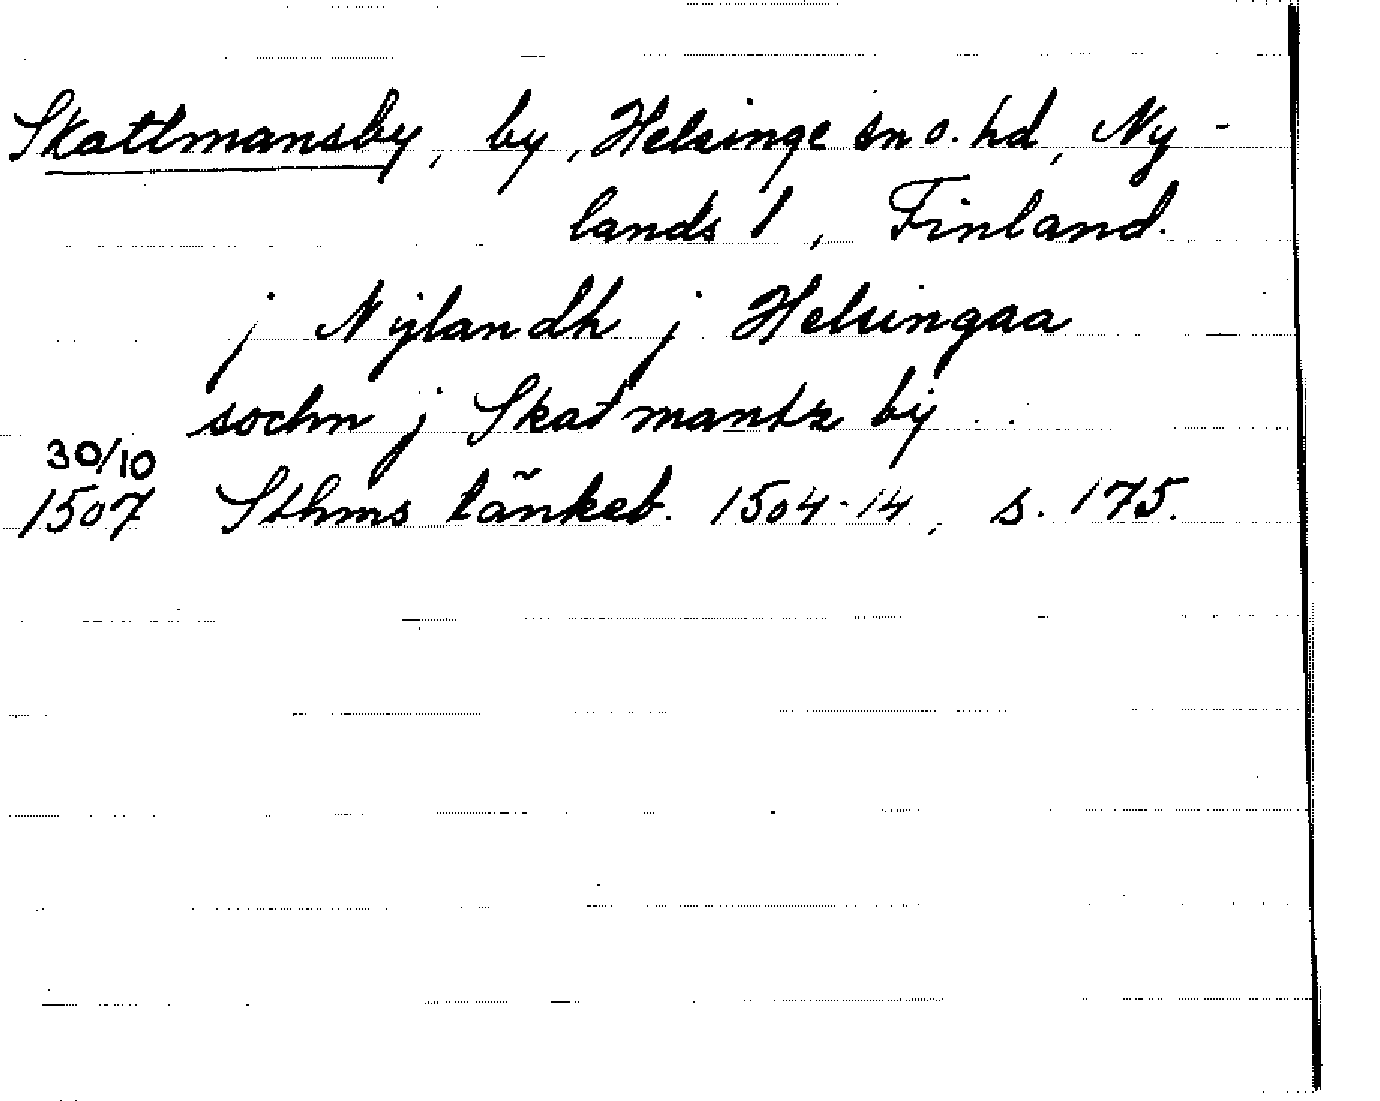 Skattmansby, by, Helsinge sn o. hd, Ny-
lands l, Finland.
j Nÿlandh j Helsingaa
sochn j Skatmantz bÿ . .
30/10
1507 Sthms tänkeb. 1504-14, s. 175.